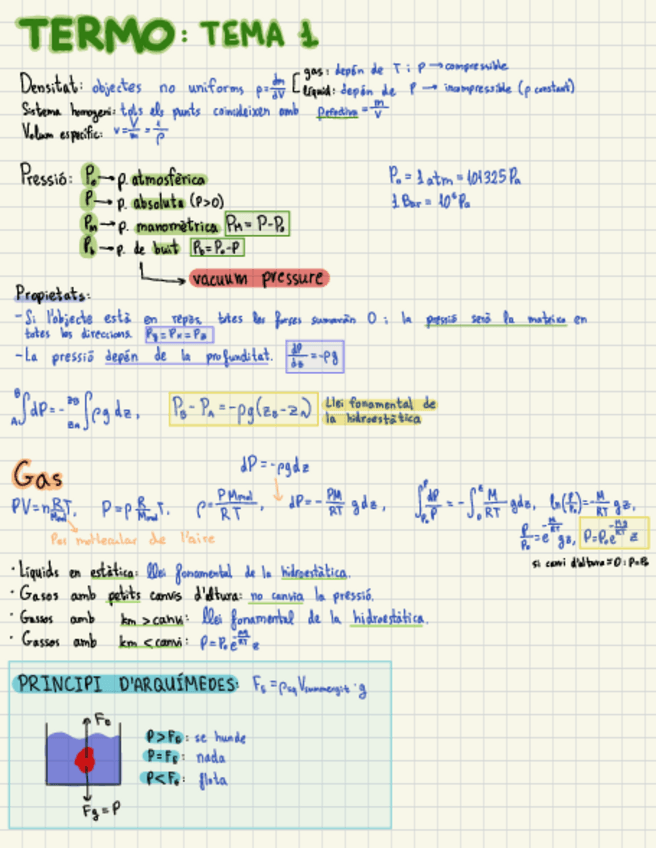 TERMO: TEMA 1
Densitat: objectes no uniforms ρ=dm/dV [ gas: depèn de T i P → compressible
líquid: depèn de P → incompressible (ρ constant)
Sistema homogeni: tots els punts coincideixen amb ρefectiva = m/V
Volum específic: v = V/m = 1/ρ
Pressió: P₀ → p. atmosfèrica
P₀ = 1 atm = 101325 Pa
P → p. absoluta (P>0)
1 Bar = 10⁶ Pa
Pм → p. manomètrica Pм = P-P₀
Pb → p. de buit Pb = P₀-P
vacuum pressure
Propietats:
-Si l'objecte està en repòs, totes les forces sumaran 0 i la pressió serà la mateixa en
totes les direccions. Py = Px = Pz
-La pressió depèn de la profunditat. dP/dz = -ρg
A∫B dP = - zA∫zB ρg dz, PB - PA = -ρg(zB-zA) Llei fonamental de
la hidroestàtica
Gas
dP = -ρgdz
PV = n RT, P = ρ R/Mmol T, ρ = PMmol/RT, dP = - PM/RT gdz, ∫ dP/P = -∫ M/RT gdz, ln(P/P₀) = -M/RT gz,
P/P₀ = e^-M/RT gz, P = P₀e^-Mg/RT z
Pes molecular de l'aire
si canvi d'altura = 0 : P=P₀
· Líquids en estàtica: llei fonamental de la hidrostàtica.
· Gasos amb petits canvis d'altura: no canvia la pressió.
· Gassos amb km > canvi: llei fonamental de la hidrostàtica.
· Gassos amb km < canvi: P = P₀ e^-Mg/RT z
PRINCIPI D'ARQUÍMEDES: Fb = ρliq Vsummergit · g
Fb
P > Fb: se hunde
P = Fb: nada
P < Fb: flota
Fg = P